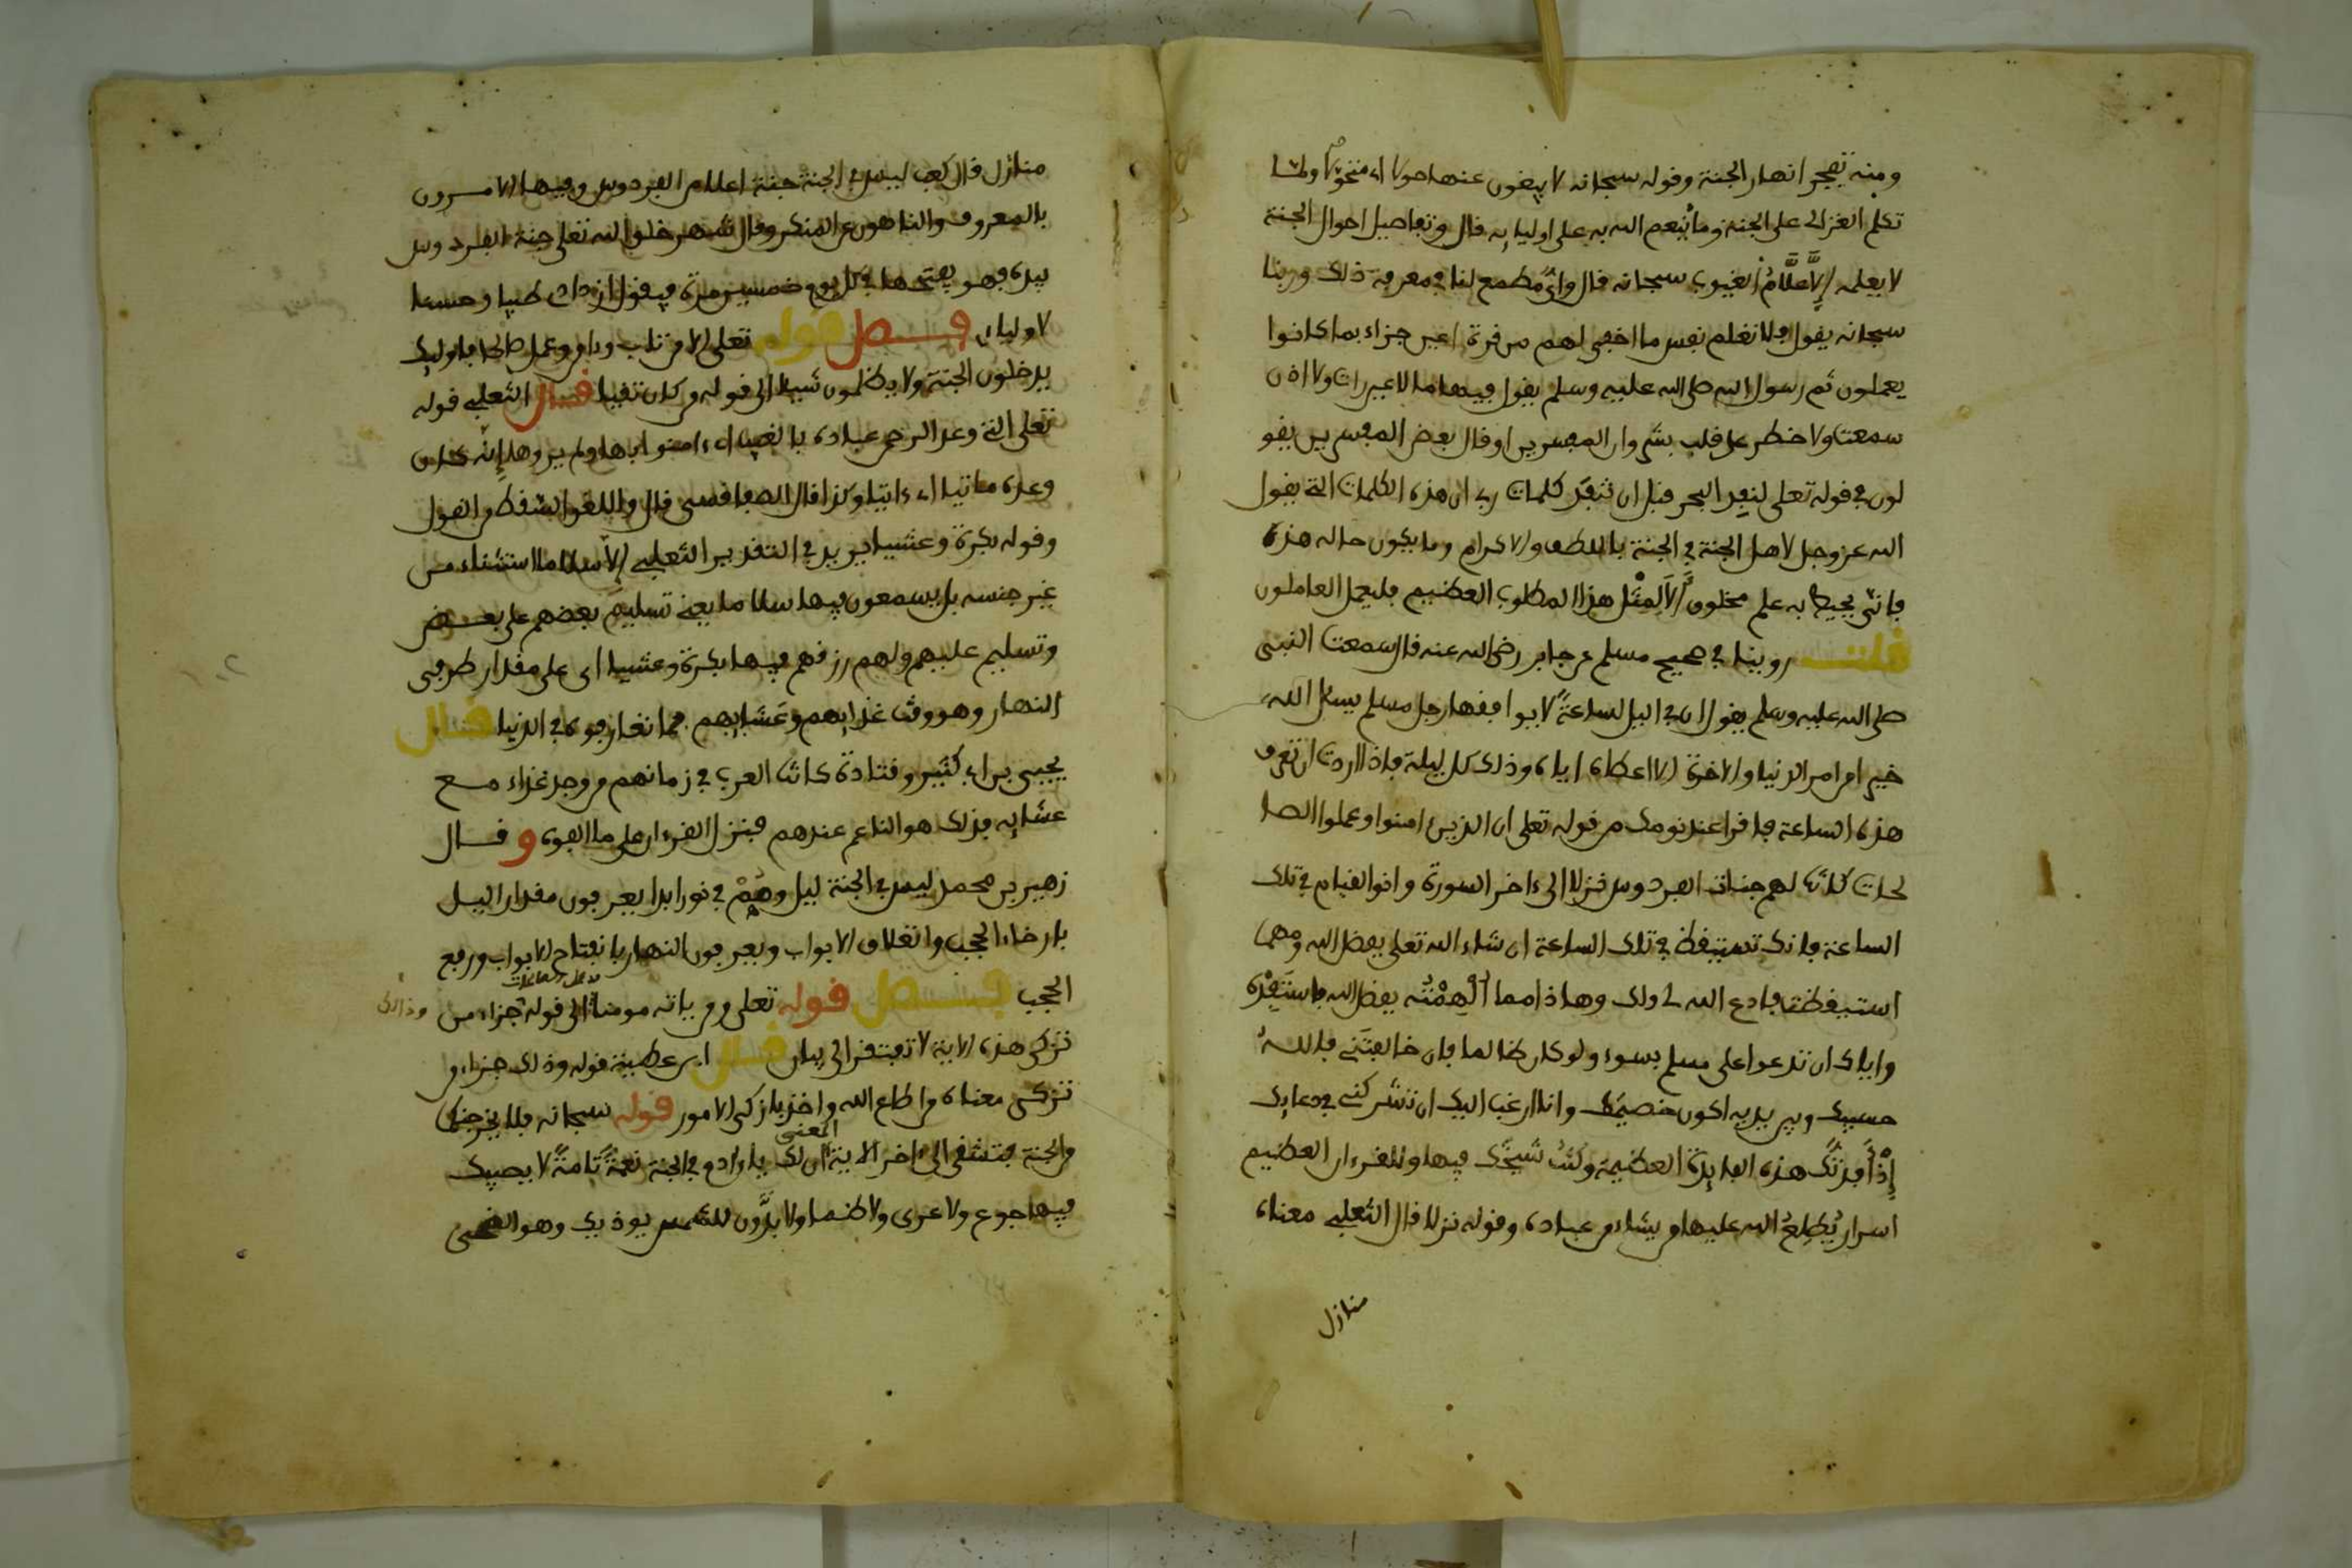 ومنه تفجر انهار الجنة وقوله سبحانه لا يبغون عنها حولا اي متحولا ولما
تكلم الغزالي على الجنة وما ينعم الله به على اوليايه قال وتفاصيل احوال الجنة
لا يعلمه إلا علام الغيوب سبحانه قال واي مطمع لنا في معرفة ذلك وربنا
سبحانه يقول فلا تعلم نفس ما اخفي لهم من قرة اعين جزاء بما كانوا
يعملون ثم رسول الله صلى الله عليه وسلم يقول فيها ما لا عين رات ولا اذن
سمعت ولا خطر على قلب بشر وان المفسرين او قال بعض المفسرين يقو
لون في قوله تعلى لنفد البحر قبل ان تنفد كلمات ربي ان هذه الكلمات التي يقول
الله عز وجل لاهل الجنة في الجنة باللطف والاكرام وما يكون حاله هذه
فانى يحيط به علم مخلوق ألا لمثل هذا المطلوب العظيم فليعمل العاملون
قلت روينا في صحيح مسلم عن جابر رضي الله عنه قال سمعت النبي
صلى الله عليه وسلم يقول ان في اليل لساعة لا يوافقها رجل مسلم يسئل الله
خيرا من امر الدنيا والاخرة الا اعطاه اياه وذلك كل ليلة فاذا اردت ان تعرف
هذه الساعة فاقرا عند نومك من قوله تعلى ان الذين امنوا وعملوا الصا
لحات كانت لهم جنات الفردوس نزلا الى ءاخر السورة وانو القيام في تلك
الساعة فانك تستيقظ في تلك الساعة ان شاء الله تعلى بفضل الله ومهما
استيقظت فادع الله لي ولك وهاذا مما ألهمته بفضل الله فاستفده
واياك ان تدعوا على مسلم بسوء ولو كان ظالما فان خالفتني فالله
حسيبك وبين يديه اكون خصيمك وانا ارغب اليك ان تشركني في دعايك
إذ أفدتك هذه الفايدة العظيمة وكنت شيخك فيها وللقرءان العظيم
اسرار يطلع الله عليها من يشاء من عباده وقوله نزلا قال الثعلبي معناه
منازل
منازل قال كعب ليس في الجنة جنة اعلا من الفردوس وفيها الامرون
بالمعروف والناهون عن المنكر وقال شهر خلق الله تعلى جنة الفردوس
بيده فهو يفتحها في كل يوم خمسين مرة فيقول ازدادي طيبا وحسنا
لاوليائي فصل قوله تعلى الا من تاب وءامن وعمل صالحا فاوليك
يدخلون الجنة ولا يظلمون شيئا الى قوله من كان تقيا قال الثعلبي قوله
تعلى التي وعد الرحمن عباده بالغيب اي ءامنوا بها ولم يروها إنه كان
وعده ماتيا اي ءاتيا وكذا قال الصفاقسي قال واللغو السقط من القول
وقوله بكرة وعشيا يريد في التقدير الثعلبي إلا سلاما استثناء من
غير جنسه بل يسمعون فيها سلاما يعني تسليم بعضهم على بعض
وتسليم عليهم ولهم رزقهم فيها بكرة وعشيا اي على مقدار طرفي
النهار وهو وقت غدايهم وعشايهم مما تعارفوه في الدنيا قال
يحيى بن ابي كثير وقتادة كانت العرب في زمانهم من وجد غداء مع
عشايه فذلك هو الناعم عندهم فنزل القرءان على ما الفوه وقال
زهير بن محمد ليس في الجنة ليل وهم في نور ابدا يعرفون مقدار اليل
بارخاء الحجب وانغلاق الابواب ويعرفون النهار بانفتاح الابواب ورفع
الحجب فصل قوله تعلى ومن ياته مومنا الى قوله جزاء من وذالك
تزكى هذه الاية لا تفتقر الى بيان قال ابن عطية قوله وذلك جزاء من
تزكى معناه من اطاع الله واخذ بازكى الامور قوله سبحانه فلا يخرجنكما
من الجنة فتشقى الى ءاخر الاية المعنى ان لك يا ءادم في الجنة نعمة تامة لا يصيبك
فيها جوع ولا عري ولا ظمأ ولا بدو للشمس يوذيك وهو الضحى